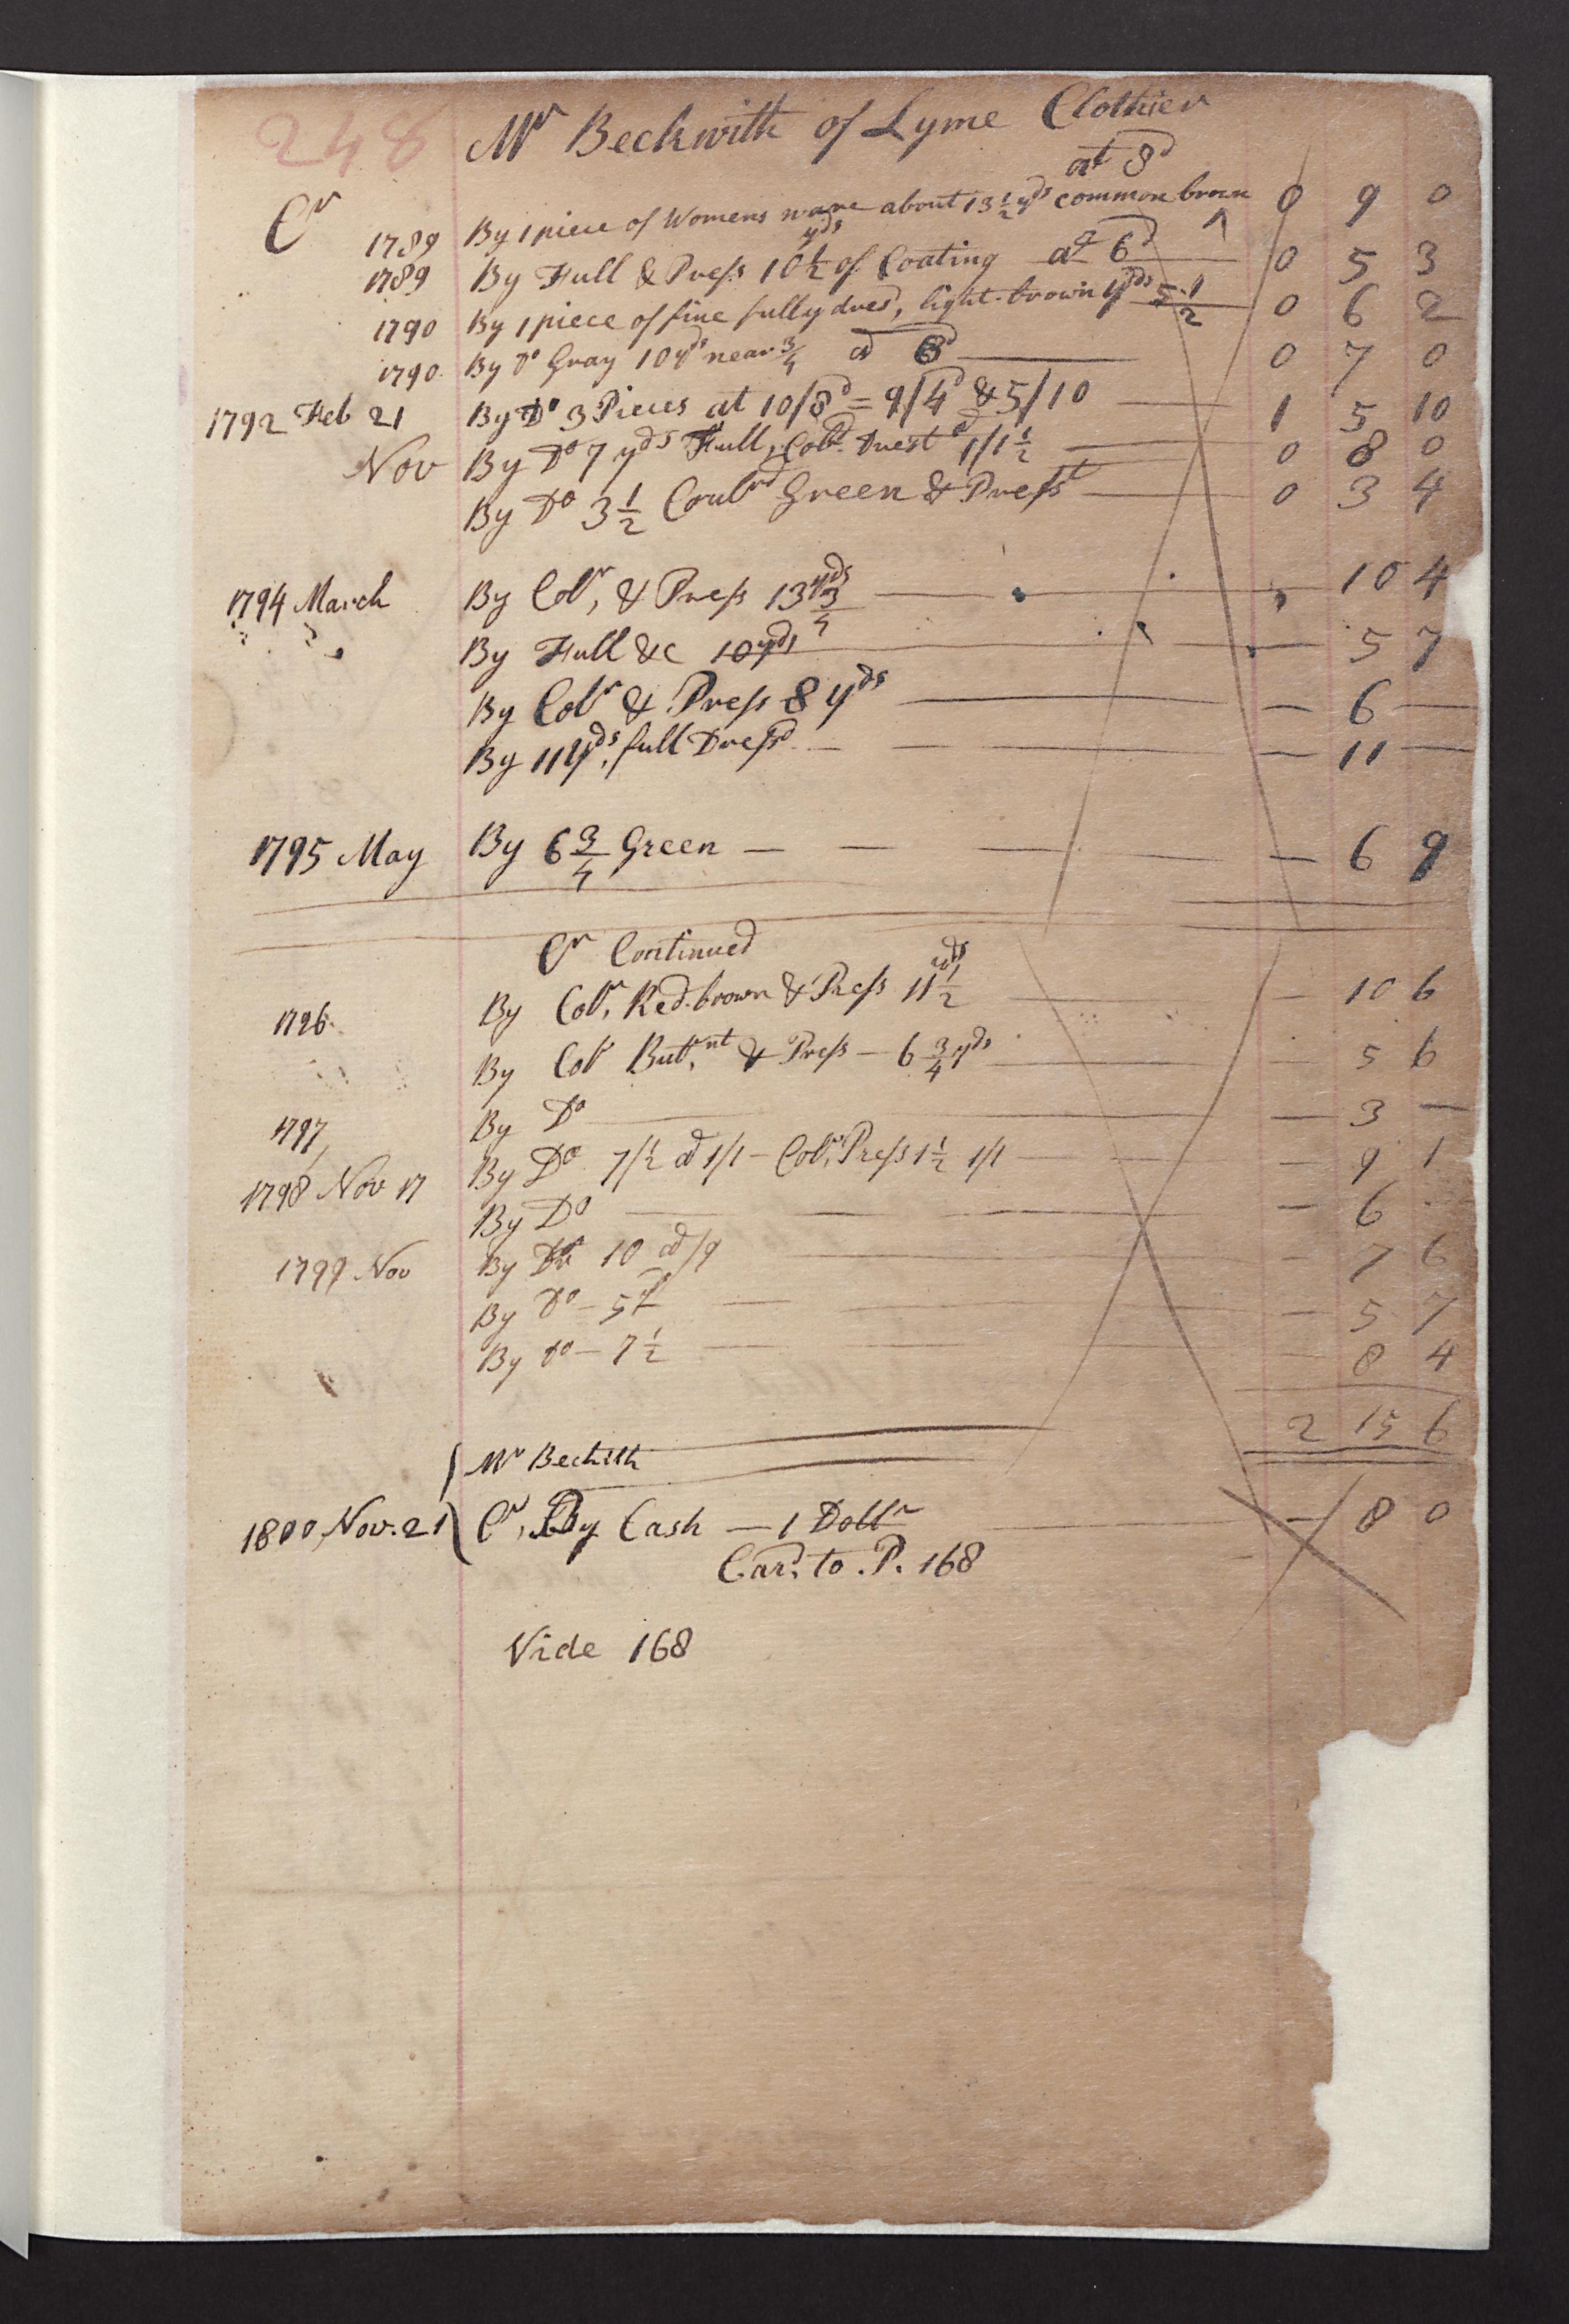 248 Mr Beckwith of Lyme Clothier
at 8d
Cr 1789 By 1 piece of Womens ware about 13 1/2 yds common brown ^ 0 9 0
1789 By Full & Press 10 1/2 yds of Coating at 6d 0 5 3
1790 By 1 piece of fine fully dres'd, light-brown yds 5 1/2 0 6 2
1790 By Do Gray 10 yds near 3/4 at 8d 0 7 0
1792 Feb 21 By Do 3 Pieces at 10/8d = 9/4d & 5/10 1 5 10
Nov By Do 7 yds Full, Colrd. Drest at 1/1 1/2 0 8 0
By Do 3 1/2 Coulrd Green & Presst 0 3 4
1794 March By Colr, & Press 13 yds 3/4 10 4
By Full &c 10 yds 5 7
By Colr & Press 8 yds — 6 —
By 11 yds, full Dressd — 11 —
1795 May By 6 3/4 Green — — — — — 6 9
Cr Continued
1796. By Colr. Red-brown & Press 11 1/2 yds — 10 6
By Colr But.nt & Press — 6 3/4 yds — 5 6
1797 By Do — 3 —
1798 Nov 17 By Do 7 1/2 at 1/1 — Colr. Press 1 1/2 1/1 — 9 1
By Do — 6
1799 Nov By Do 10 at /9 — 7 6
By Do — 5 yd — 5 7
By Do — 7 1/2 — 8 4
2 15 6
Mr Beckith
1800, Nov. 21 Cr, By Cash — 1 Dollr — 8 0
Car.d to . P. 168
Vide 168